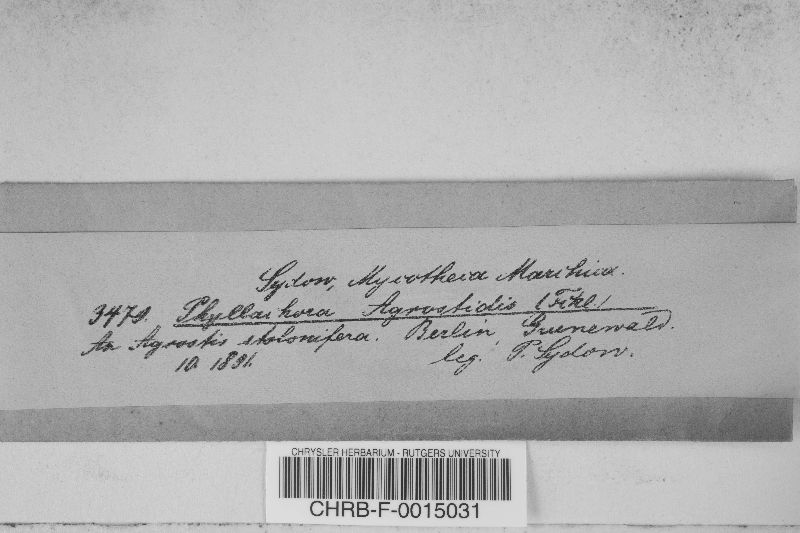 Sydow, Mycotheca Marchica.
3479. Phyllachora Agrostidis (Fckl)
An Agrostis stolonifera. Berlin, Grunewald.
10. 1891. leg. P. Sydow.
CHRYSLER HERBARIUM - RUTGERS UNIVERSITY
CHRB-F-0015031